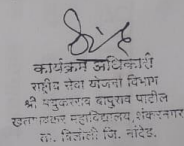 कार्यक्रम अधिकारी
राष्ट्रीय सेवा योजना विभाग
श्री मधुकरराव बापुराव पाटील
खतगावकर महाविद्यालय, शंकरनगर
ता. बिलोली जि. नांदेड.